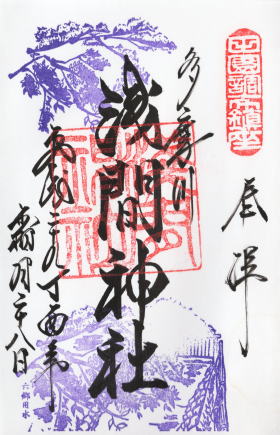 田園調布鎮座
奉拝
多摩川
浅間神社
丁酉年
霜月廿八日
六郷用水